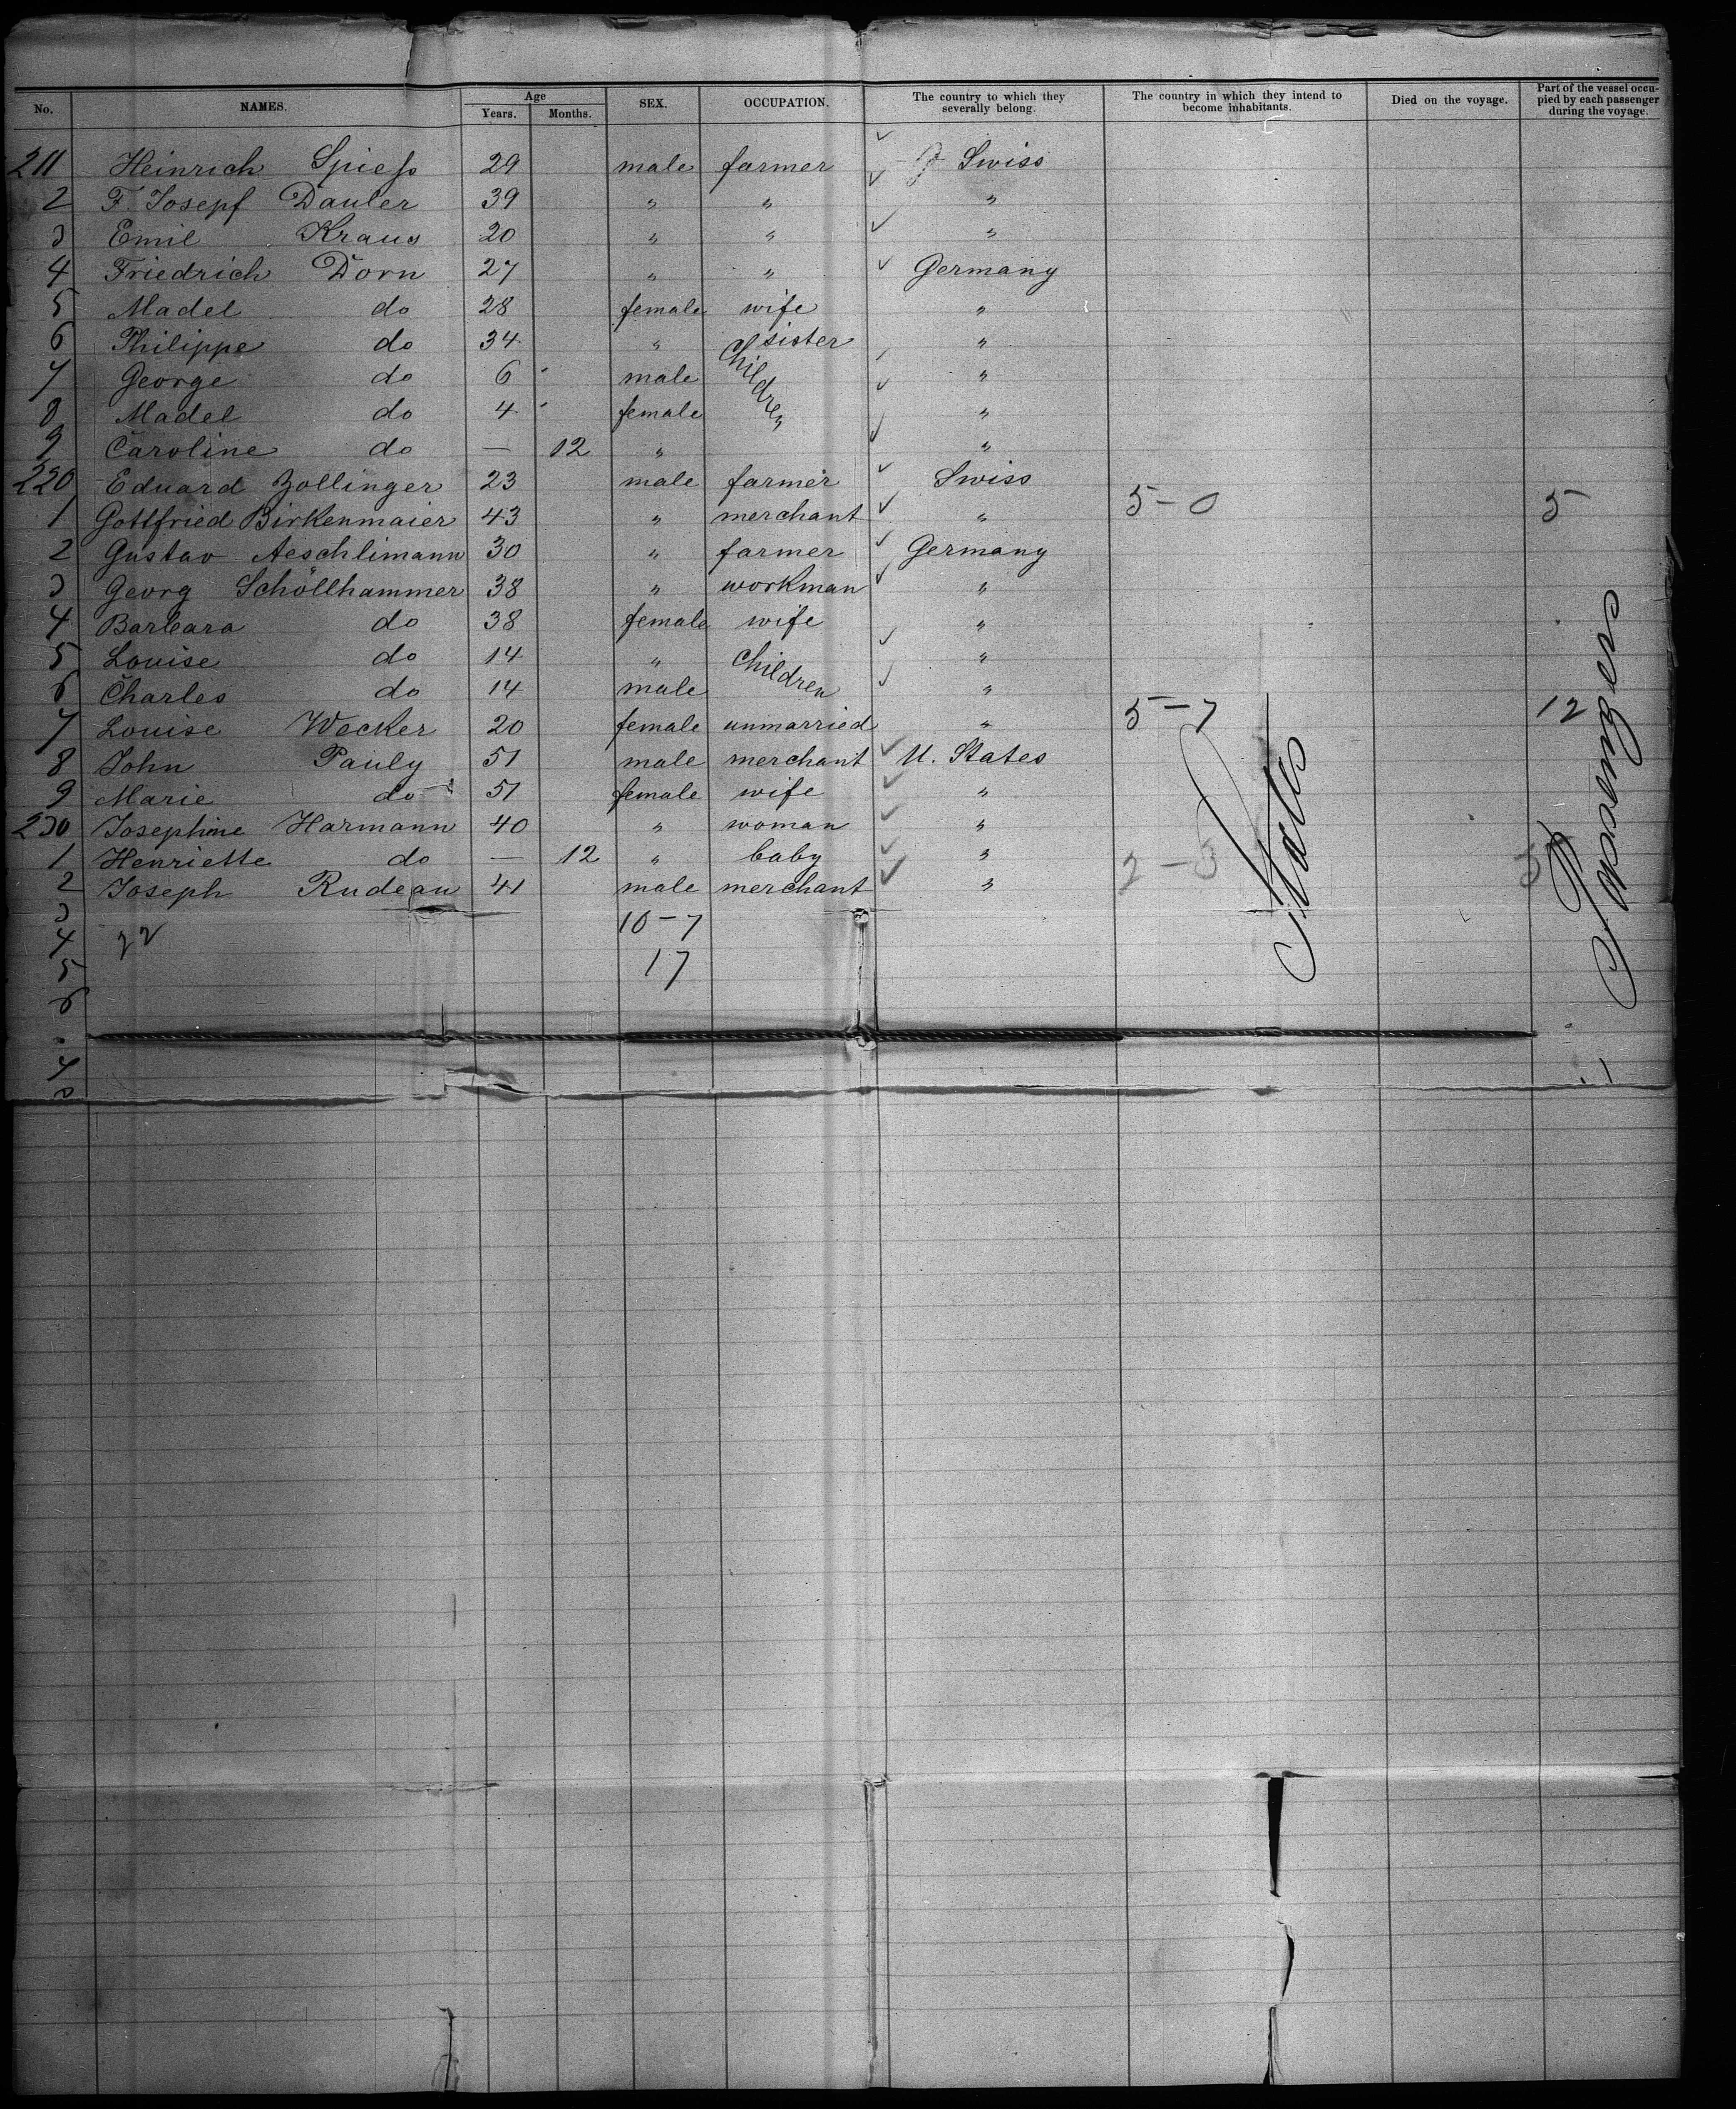 No. NAMES. Age Years. Months. SEX. OCCUPATION. The country to which they severally belong. The country in which they intend to become inhabitants. Died on the voyage. Part of the vessel occupied by each passenger during the voyage.
211 Heinrich Spieß 29 male farmer Swiss
2 F. Josepf Dauler 39 " " "
3 Emil Kraus 20 " " "
4 Friedrich Dorn 27 " " Germany
5 Madel do 28 female wife "
6 Philippe do 34 " sister "
7 George do 6 male Children "
8 Madel do 4 female "
9 Caroline do — 12 " "
220 Eduard Zollinger 23 male farmer Swiss
1 Gottfried Birkenmaier 43 " merchant " 5-0 5
2 Gustav Aeschlimann 30 " farmer Germany
3 Georg Schöllhammer 38 " workman "
4 Barbara do 38 female wife "
5 Louise do 14 " Children "
6 Charles do 14 male "
7 Louise Wecker 20 female unmarried " 5-7 12
8 John Pauly 51 male merchant U. States
9 Marie do 51 female wife "
230 Josephine Harmann 40 " woman "
1 Henriette do — 12 " baby " 2-3
2 Joseph Rudeau 41 male merchant "
3 10-7
4 22
5 17
6
States
Passengers